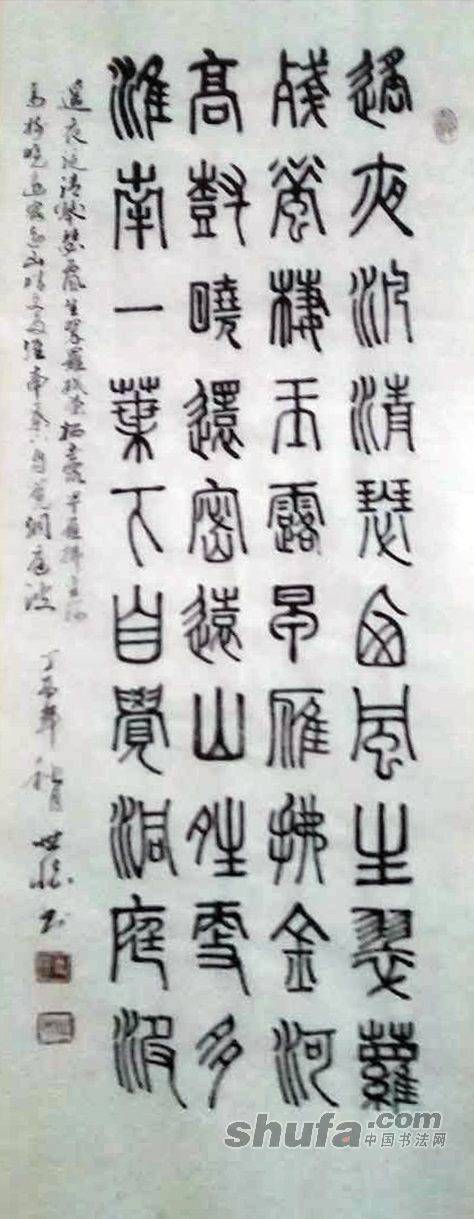 遙夜汎清瑟西風生翠蘿
殘螢棲玉露早雁拂金河
高樹曉還密遠山晴更多
淮南一葉下自覺洞庭波
遥夜泛清瑟西風生翠蘿残萤栖玉露早雁拂金河
高树晓还密远山晴更多淮南一葉自觉洞庭波 丁酉年 世 书
shufa.com
中国书法网